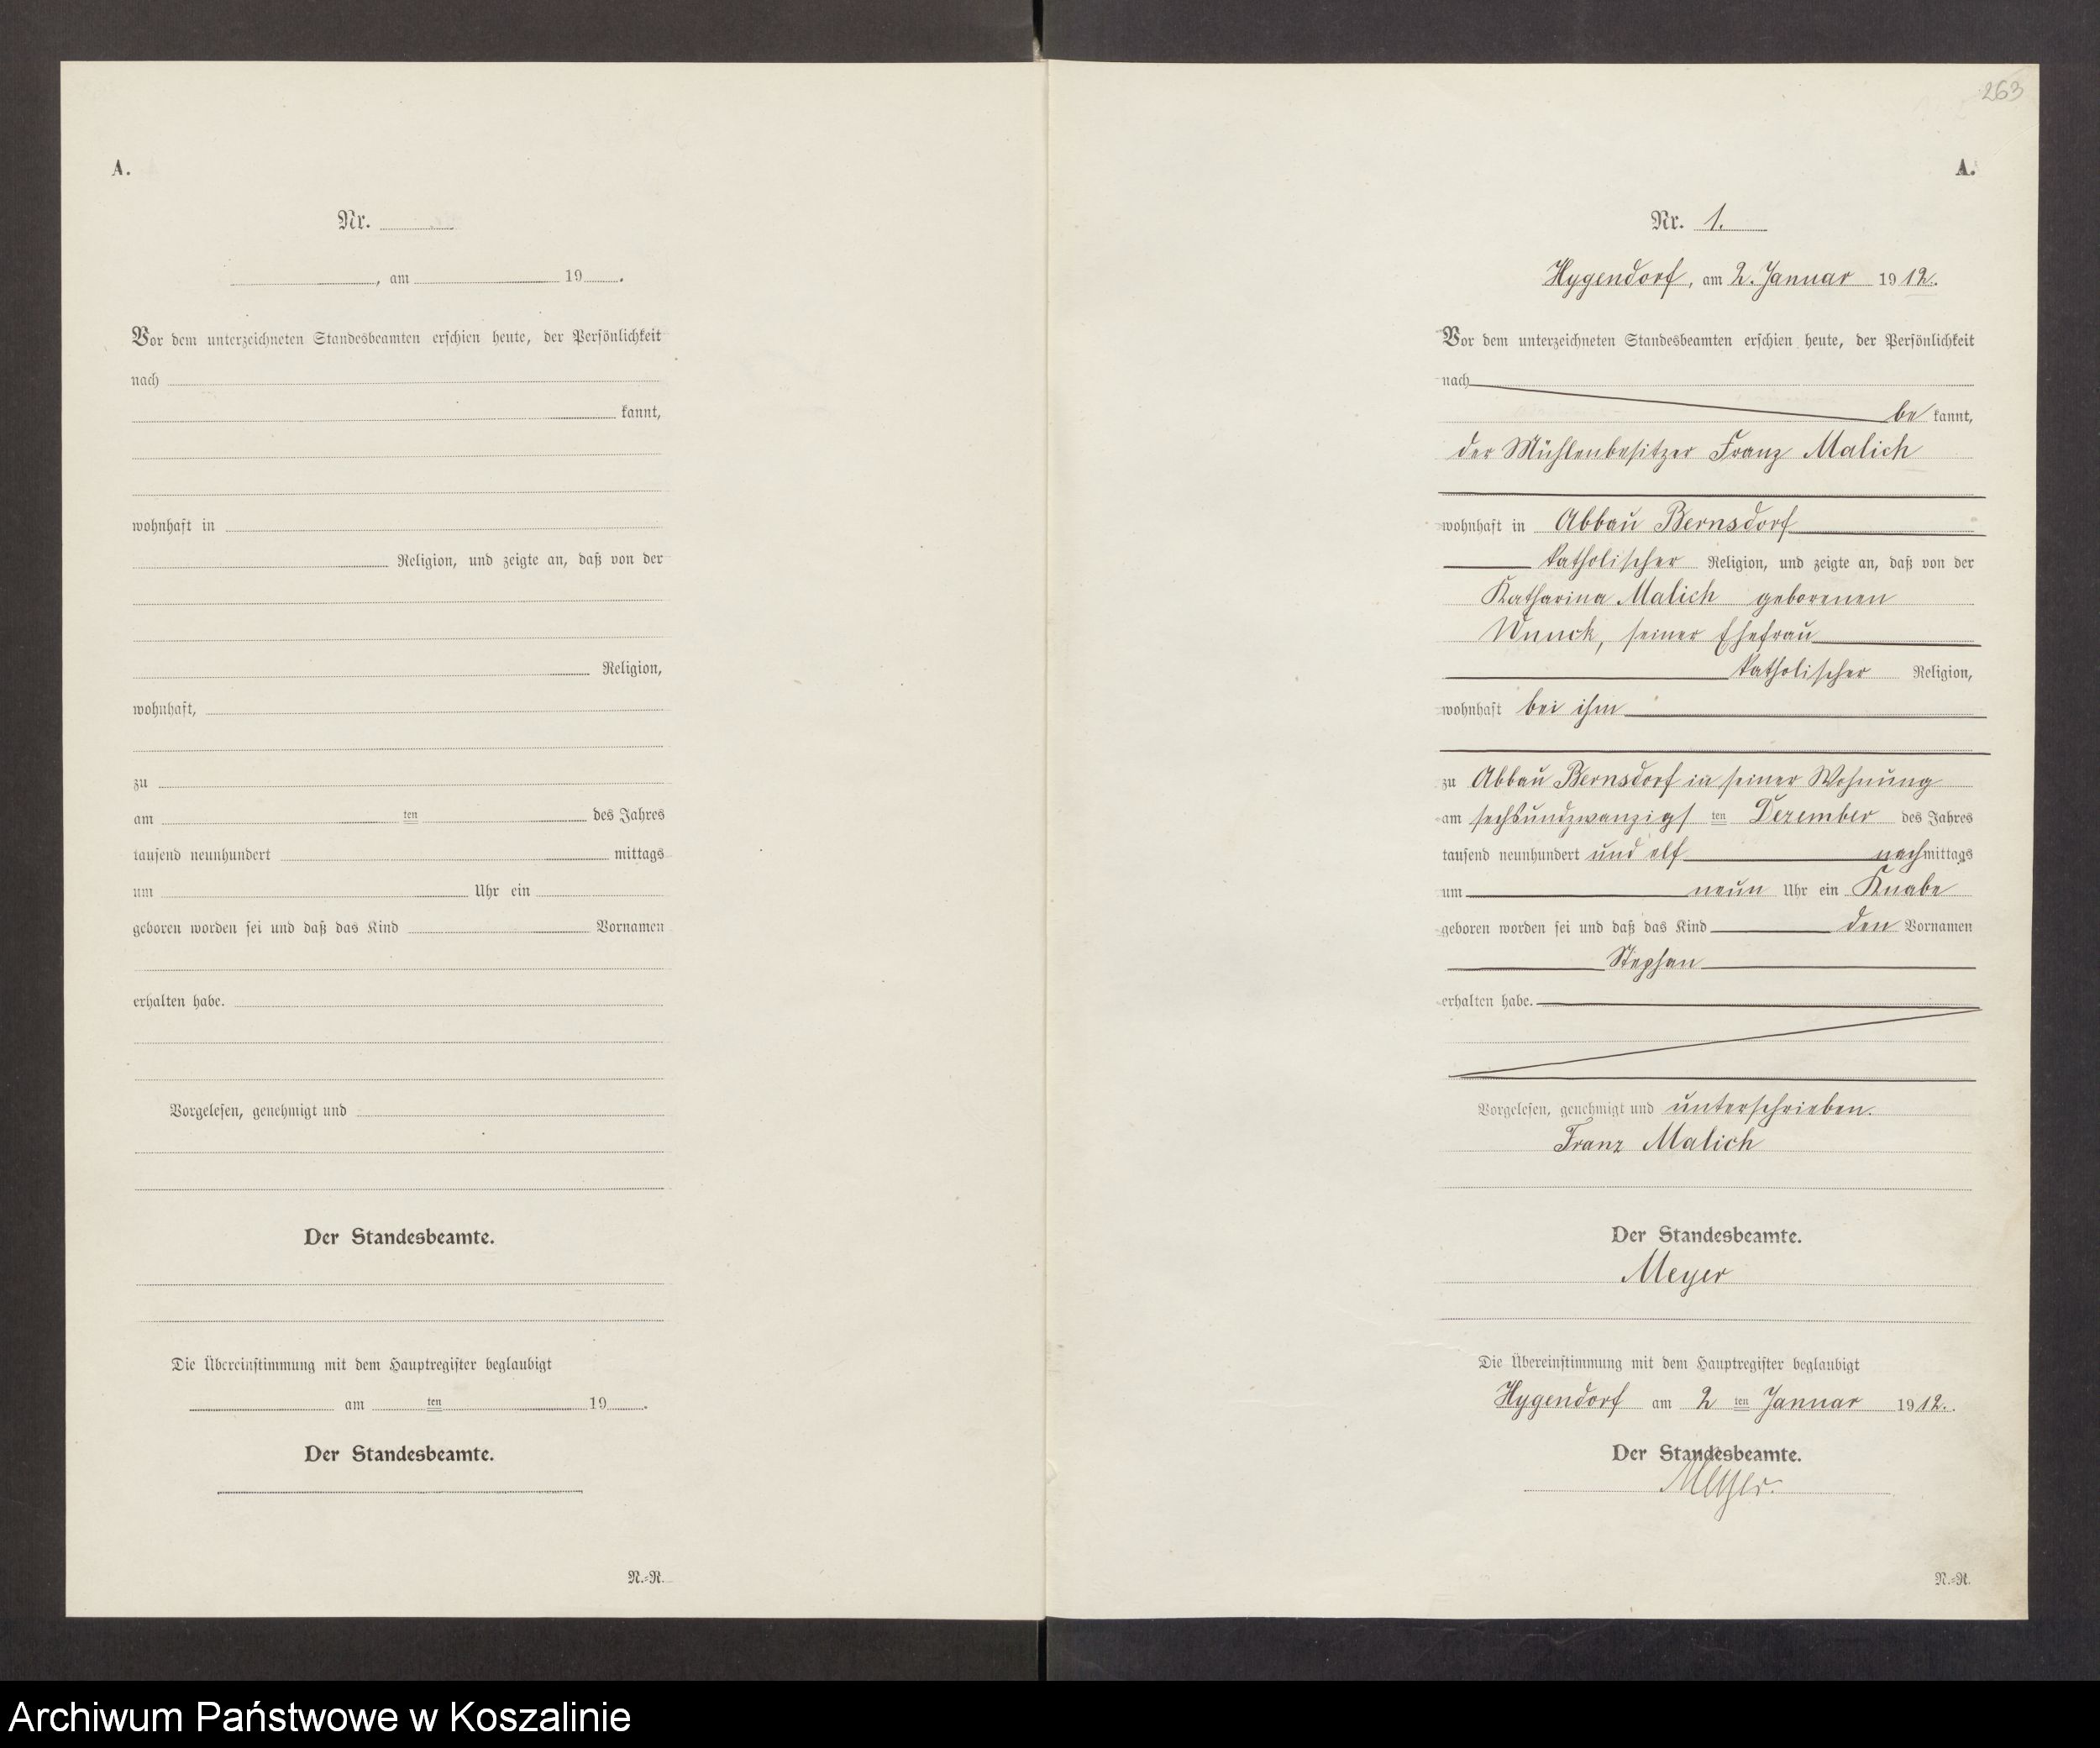 A.
Nr.
, am 19 .
Vor dem unterzeichneten Standesbeamten erschien heute, der Persönlichkeit
nach
kannt,
wohnhaft in
Religion, und zeigte an, daß von der
Religion,
wohnhaft,
zu
am ten des Jahres
tausend neunhundert mittags
um Uhr ein
geboren worden sei und daß das Kind Vornamen
erhalten habe.
Vorgelesen, genehmigt und
Der Standesbeamte.
Die Übereinstimmung mit dem Hauptregister beglaubigt
am ten 19 .
Der Standesbeamte.
N.=R.
263
A.
Nr. 1.
Hygendorf, am 2. Januar 1912.
Vor dem unterzeichneten Standesbeamten erschien heute, der Persönlichkeit
nach
be kannt,
der Mühlenbesitzer Franz Malich
wohnhaft in Abbau Bernsdorf
katholischer Religion, und zeigte an, daß von der
Katharina Malich geborenen
Wnuck, seiner Ehefrau
katholischer Religion,
wohnhaft bei ihm
zu Abbau Bernsdorf in seiner Wohnung
am sechsundzwanzigs ten Dezember des Jahres
tausend neunhundert und elf nachmittags
um neun Uhr ein Knabe
geboren worden sei und daß das Kind den Vornamen
Stephan
erhalten habe.
Vorgelesen, genehmigt und unterschrieben.
Franz Malich
Der Standesbeamte.
Meyer
Die Übereinstimmung mit dem Hauptregister beglaubigt
Hygendorf am 2 ten Januar 1912.
Der Standesbeamte.
Meyer.
N.=R.
Archiwum Państwowe w Koszalinie